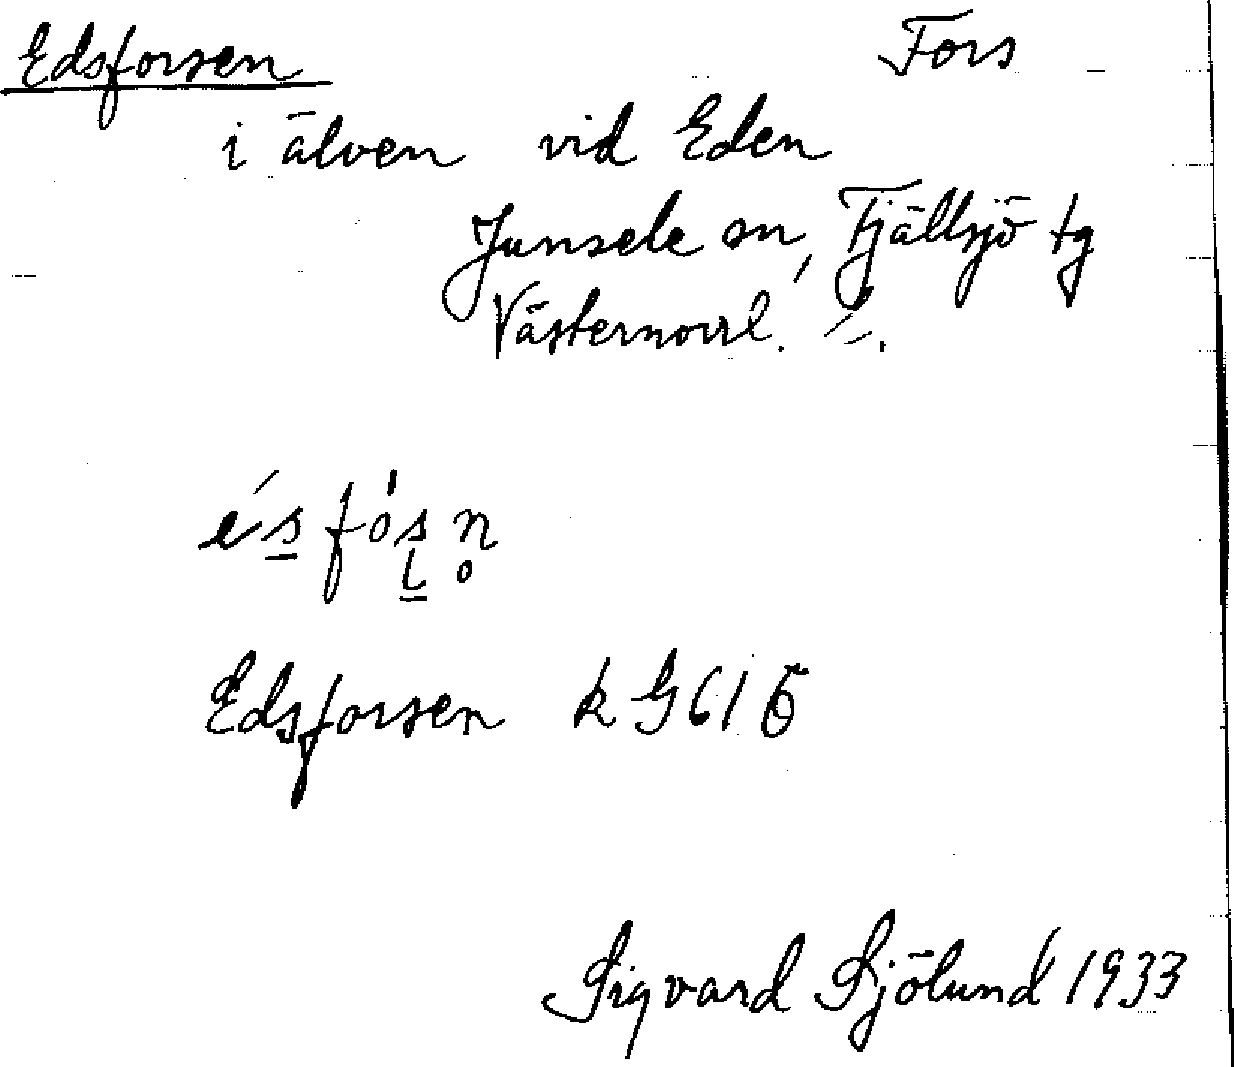 Edsforsen Fors
i älven vid Eden
Junsele sn, Fjällsjö tg
Västernorrl.
Edsforsen k G 61 6
Sigvard Sjölund 1933